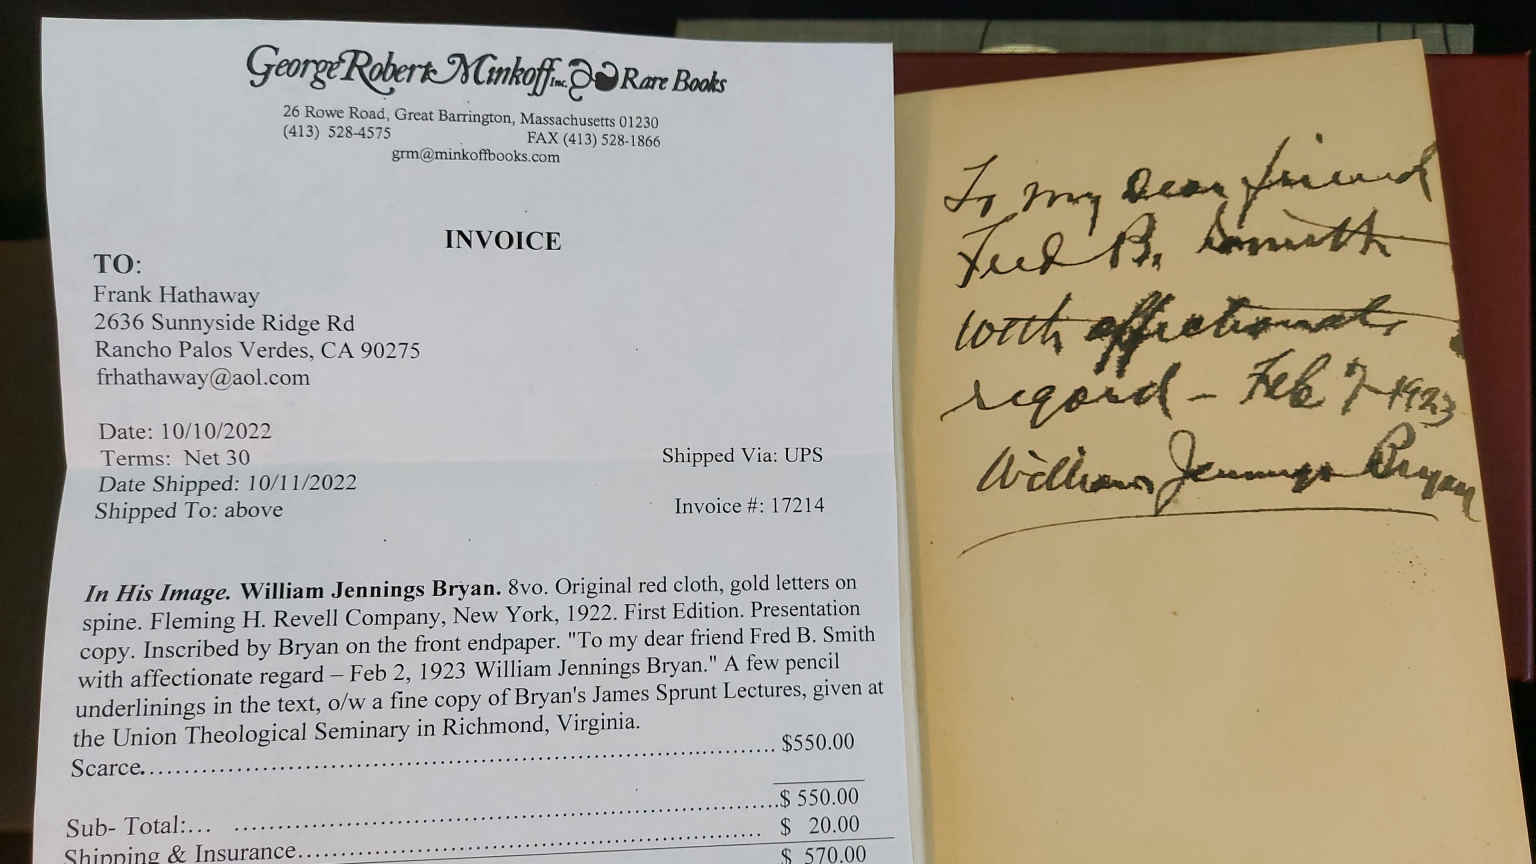 George Robert Minkoff Inc. Rare Books
26 Rowe Road, Great Barrington, Massachusetts 01230
(413) 528-4575 FAX (413) 528-1866
grm@minkoffbooks.com
INVOICE
TO:
Frank Hathaway
2636 Sunnyside Ridge Rd
Rancho Palos Verdes, CA 90275
frhathaway@aol.com
Date: 10/10/2022
Terms: Net 30
Shipped Via: UPS
Date Shipped: 10/11/2022
Shipped To: above
Invoice #: 17214
In His Image. William Jennings Bryan. 8vo. Original red cloth, gold letters on
spine. Fleming H. Revell Company, New York, 1922. First Edition. Presentation
copy. Inscribed by Bryan on the front endpaper. "To my dear friend Fred B. Smith
with affectionate regard – Feb 2, 1923 William Jennings Bryan." A few pencil
underlinings in the text, o/w a fine copy of Bryan's James Sprunt Lectures, given at
the Union Theological Seminary in Richmond, Virginia.
Scarce.......................................................................... $550.00
$ 550.00
Sub- Total:... ............................................................... $ 20.00
Shipping & Insurance.............................................................. $ 570.00
To my dear friend
Fred B. Smith
with affectionate
regard – Feb 7 – 1923
William Jennings Bryan